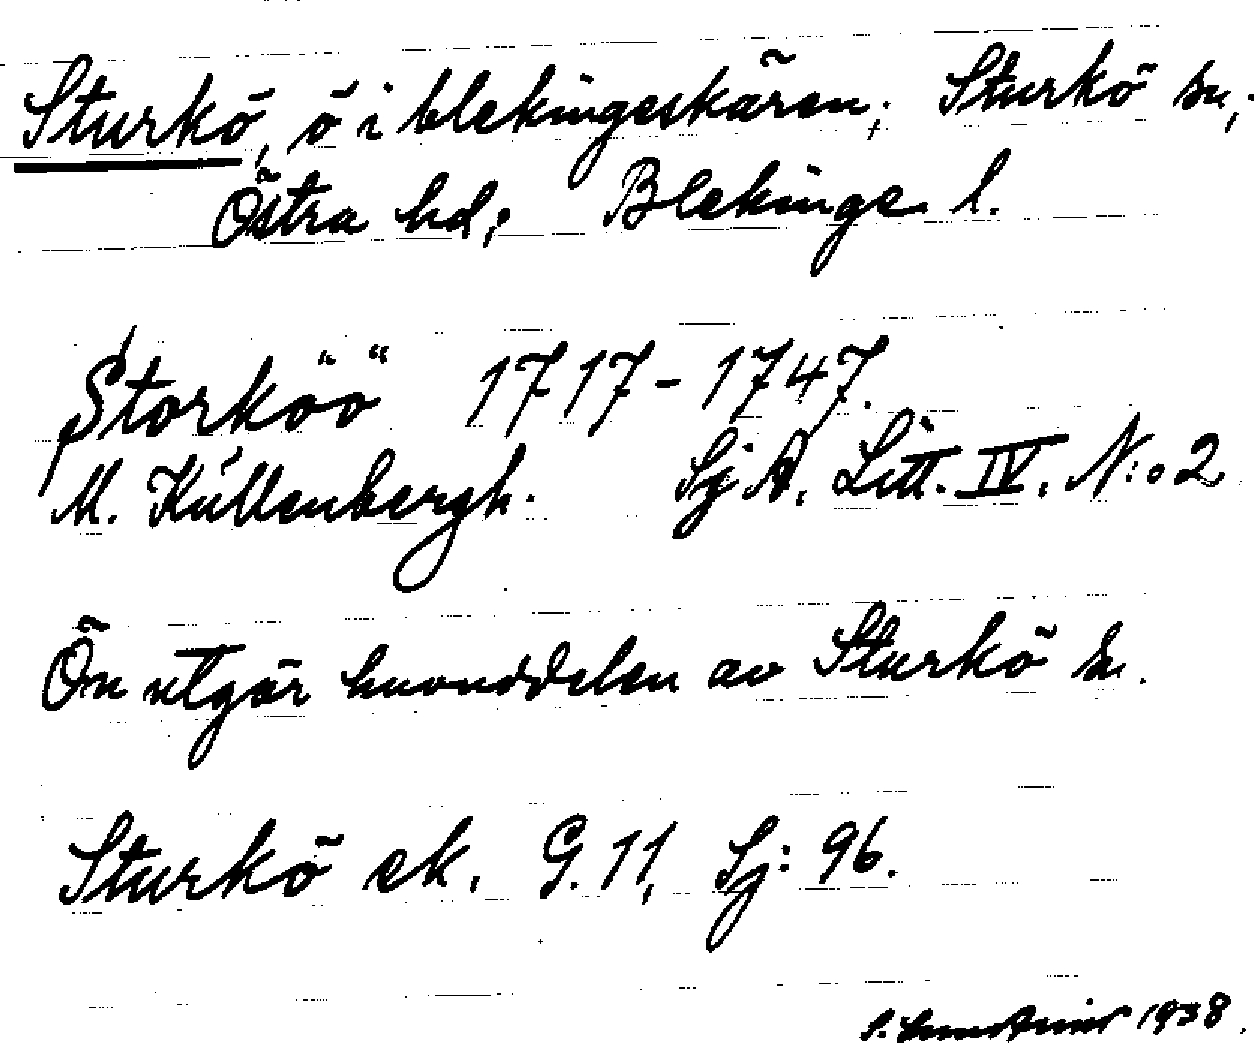 Sturkö, ö i blekingeskären; Sturkö sn;
Östra hd; Blekinge l.
Storköö 1717-1747.
M. Küllenbergh. Sj A. Litt. IV. N:o 2
Ön utgör huvuddelen av Sturkö sn.
Sturkö ek. G. 11, Sj: 96.
1938.